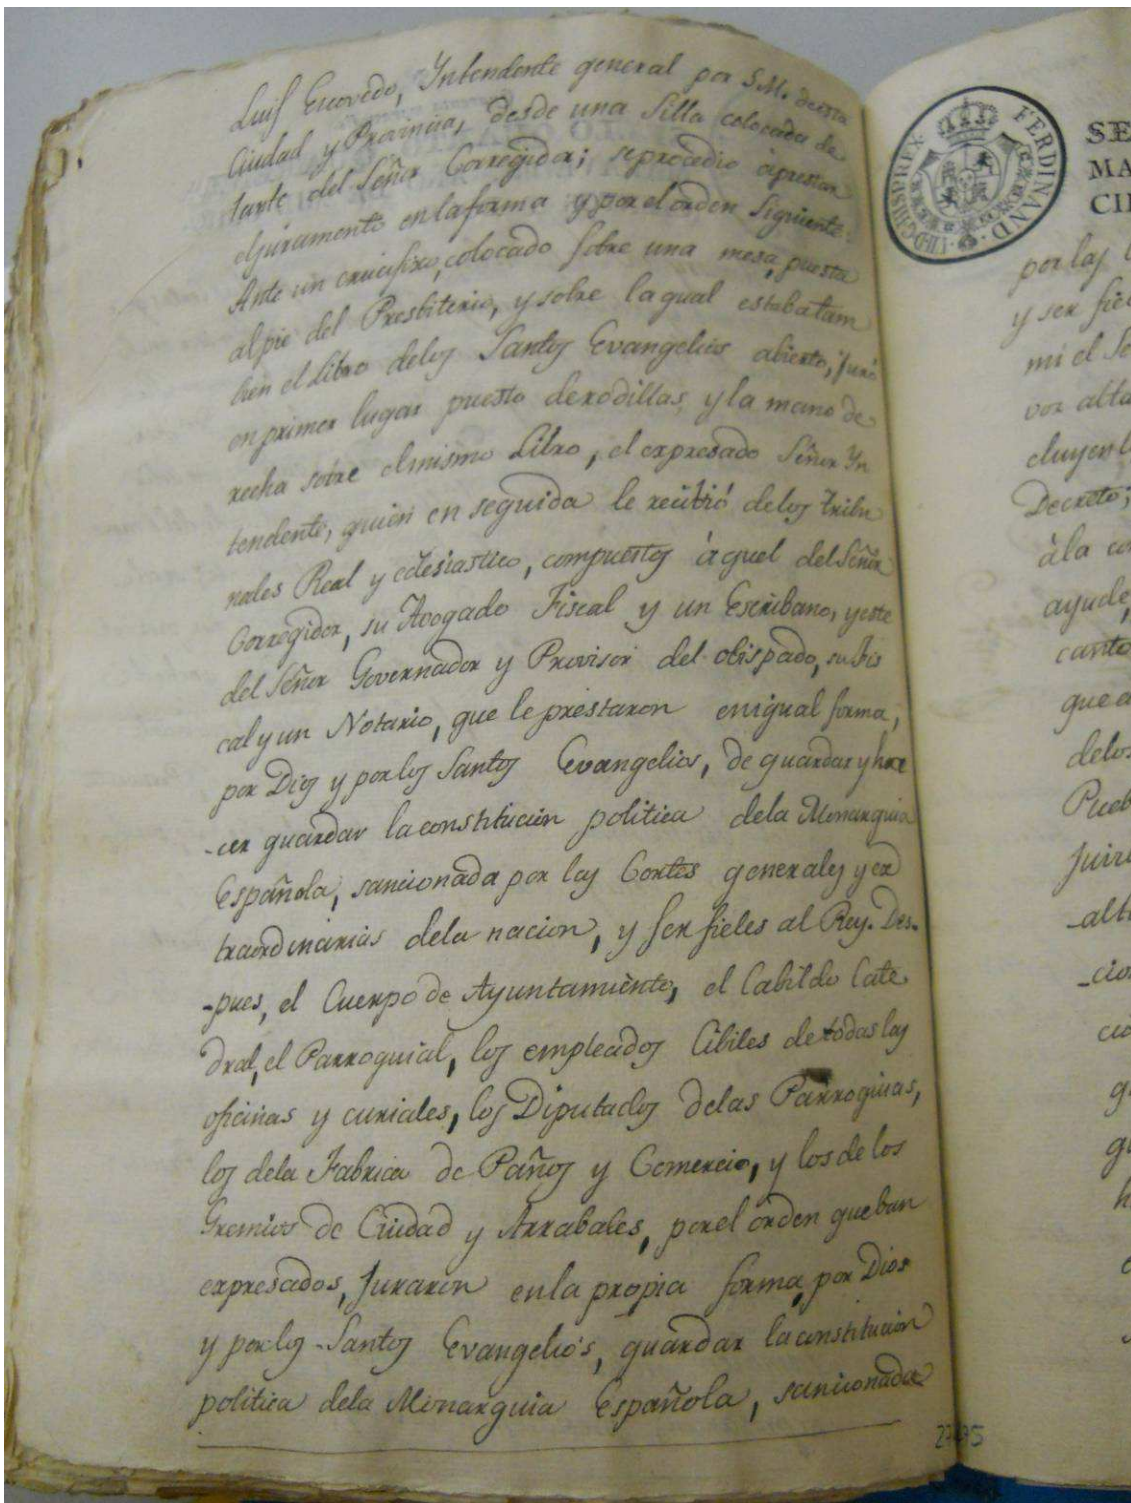 Luis Escovedo, Yntendente general por S.M. de esta
Ciudad y Provincia, desde una Silla colocada de
lante del Señor Corregidor; se procedio à prestar
el juramento en la forma y por el orden siguiente.
Ante un crucifixo, colocado sobre una mesa, puesta
al pie del Presbiterio, y sobre la qual estaba tam
bien el Libro de los Santos Evangelios abierto, juró
en primer lugar puesto de rodillas, y la mano de
recha sobre el mismo Libro, el expresado Señor Yn
tendente, quien en seguida le recibió de los tribu
nales Real y eclesiastico, compuestos àquel del Señor
Corregidor, su Avogado Fiscal y un Escribano, y este
del Señor Governador y Provisor del obispado, su Fis
cal y un Notario, que le prestaron en igual forma,
por Dios y por los Santos Evangelios, de guardar y hac
-cer guardar la constitucion politica de la Monarquia
Española, sancionada por las Cortes generales y ex
traordinarias de la nacion, y ser fieles al Rey. Des-
-pues, el Cuerpo de Ayuntamiento, el Cabildo Cate
dral, el Parroquial, los empleados Cibiles de todas las
oficinas y curiales, los Diputados de las Parroquias,
los de la Fabrica de Paños y Comercio, y los de los
Gremios de Ciudad y Arrabales, por el orden que ban
expresados, juraron en la propia forma, por Dios
y por los Santos Evangelios, guardar la constitucion
politica de la Monarquia Española, sancionada
FERDINAND. VII. D. G. HISP. REX.
SE
MA
CI
por las
y ser fie
mi el Se
voz alta
cluyen l
Decreto;
à la co
ayude,
canto
que a
de los
Pueb
-alt
-cio